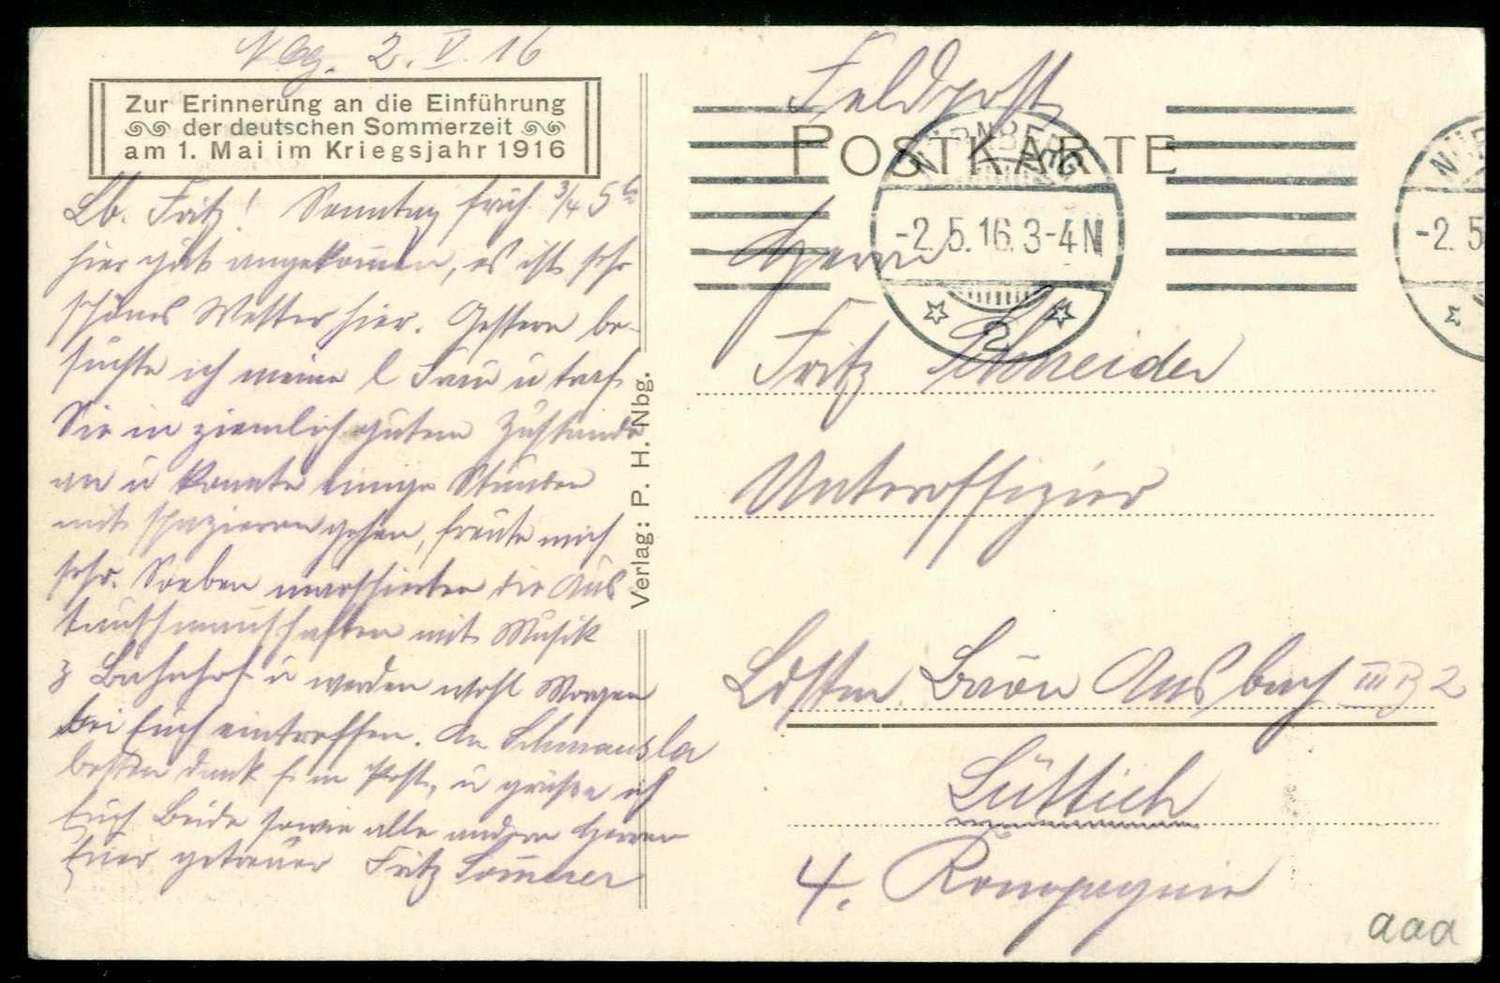 Nbg. 2. V. 16
Zur Erinnerung an die Einführung
der deutschen Sommerzeit
am 1. Mai im Kriegsjahr 1916
Lb. Fritz! Sonntag früh 3/4 5 h
hier gut angekommen, es ist sehr
schönes Wetter hier. Gestern be-
suchte ich meine l Frau u traf
Sie in ziemlich gutem Zustande
an u konnte einige Stunden
mit spazierengehen, freute mich
sehr. Soeben marschierten die Aus
tauschmannschaften mit Musik
z Bahnhof u werden wohl Morgen
bei Euch eintreffen. An Schmausla
besten Dank f. m Post, u grüße ich
Euch Beide sowie alle andern Herren
Euer getreuer Fritz Sommerer
Verlag: P. H. Nbg.
Feldpost
POSTKARTE
NÜRNBERG
-2.5.16. 3-4N
2
Herrn
Fritz Schneider
Unteroffizier
Ldstm. Baon Ansbach III B 2
Lüttich
4. Kompagnie
aaa